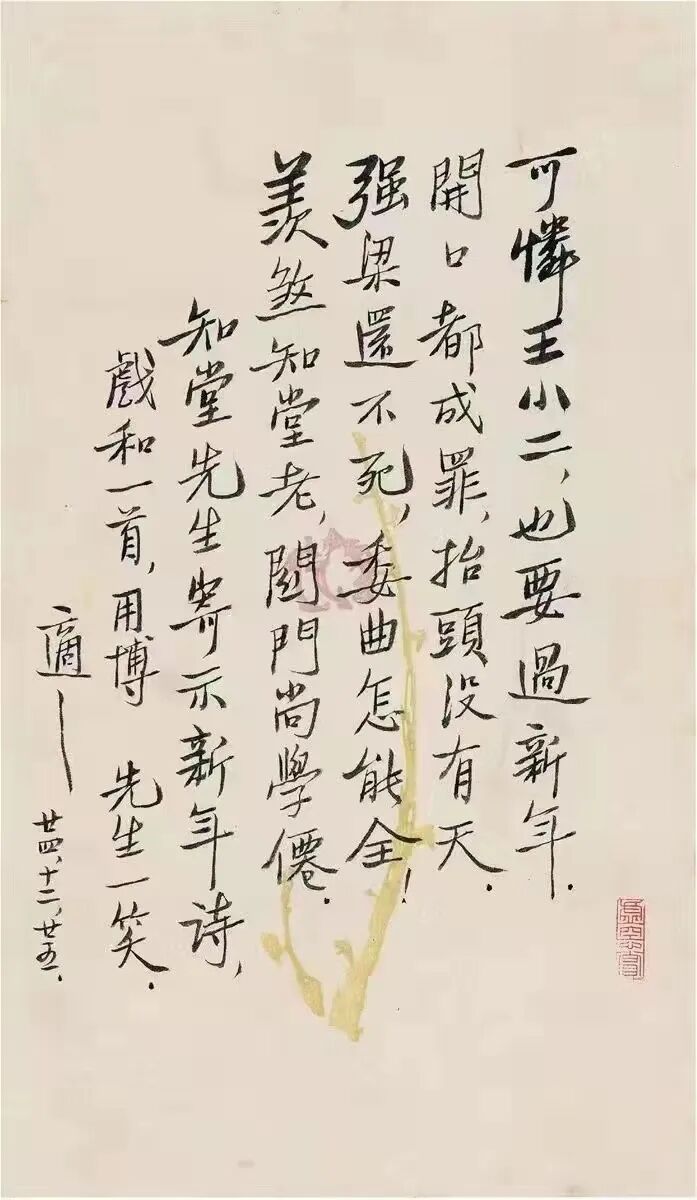 可憐王小二，也要過新年．
開口都成罪，抬頭没有天．
强梁還不死，委曲怎能全！
羨煞知堂老，閉門尚學僊．
知堂先生寄示新年詩，
戲和一首，用博　先生一笑．
適
廿四、十二、廿五．